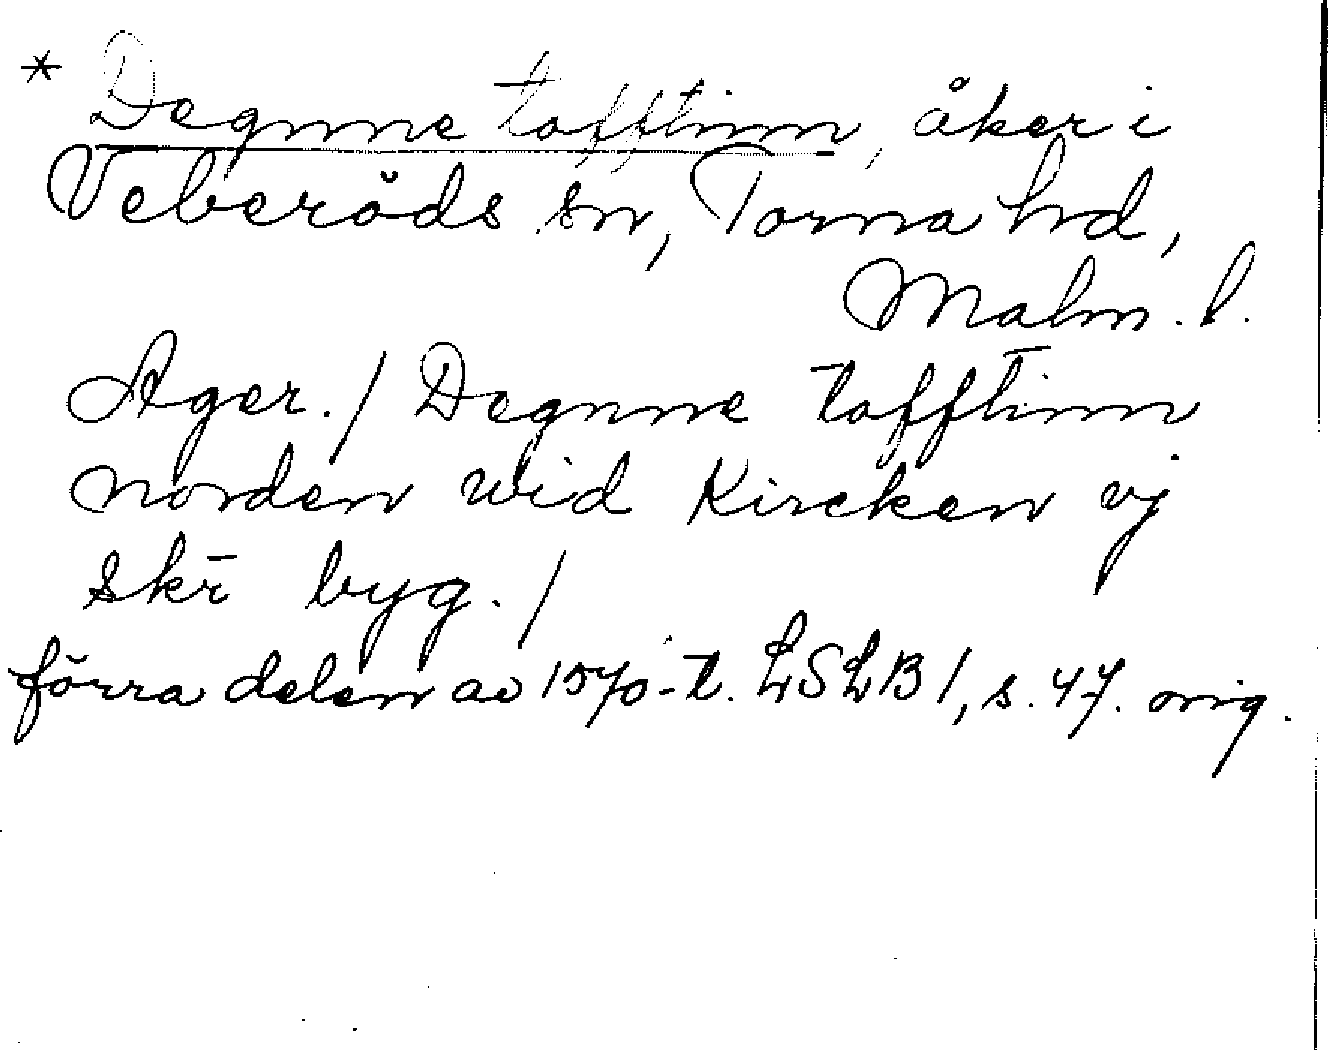 * Degnne tofftinn, åker i
Veberöds sn, Torna hd,
Malm. l.
Ager. / Degnne tofftinn
norden wid Kircken vj
skr̄ byg. /
förra delen av 1570-t. LSLB 1, s. 47. orig.